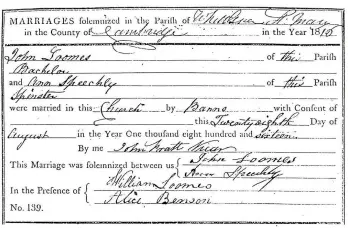 MARRIAGES solemnized in the Parish of Whittlesea St. Mary
in the County of Cambridge in the Year 1816
John Loomes of this Parish
Bachelor
and Ann Speechly of this Parish
Spinster
were married in this Church by Banns with Consent of
this Twenty eighth Day of
August in the Year One thousand eight hundred and sixteen
By me John
This Marriage was solemnized between us John Loomes
Ann Speechly
In the Presence of William Loomes
Alice Benson
No. 139.